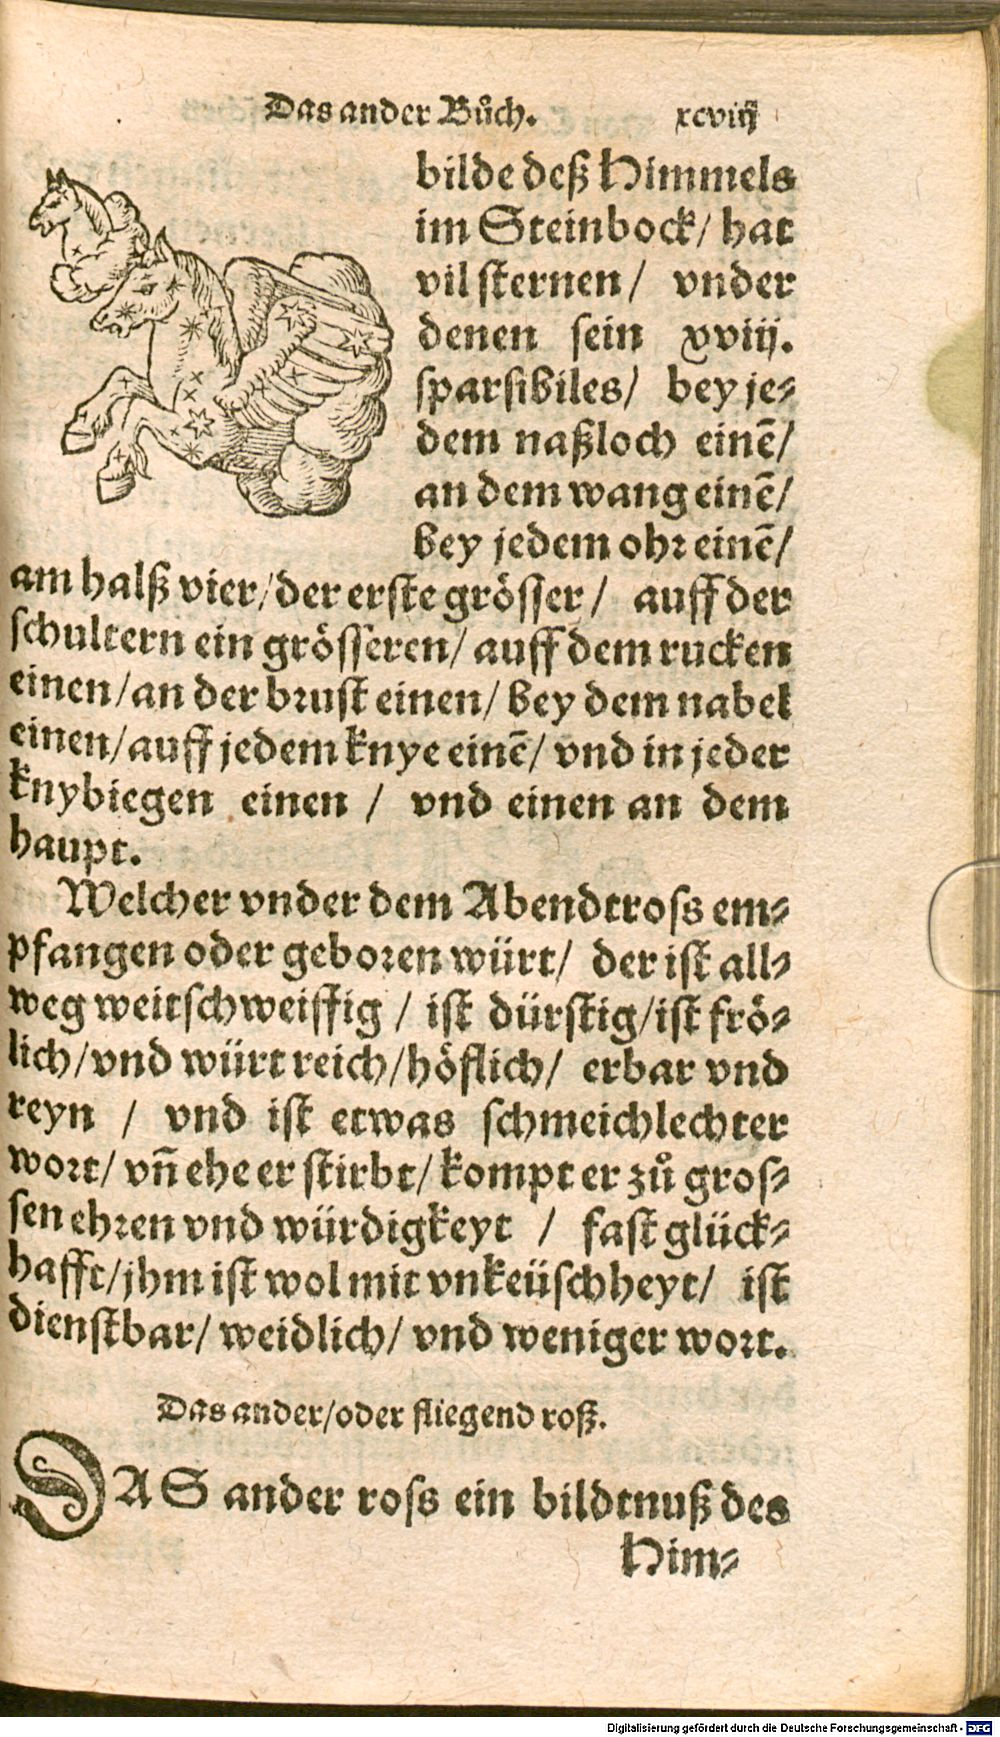 Das ander Bůch. xcviij
bilde deß Himmels
im Steinbock/ hat
vil sternen/ vnder
denen sein xviij.
sparsibiles/ bey je⸗
dem naßloch einẽ/
an dem wang einẽ/
bey jedem ohr einẽ/
am halß vier/der erste grösser/ auff der
schultern ein grösseren/ auff dem rucken
einen/an der brust einen/ bey dem nabel
einen/auff jedem knye einẽ/ vnd in jeder
knybiegen einen / vnd einen an dem
haupt.
Welcher vnder dem Abendtross em⸗
pfangen oder geboren würt/ der ist all⸗
weg weitschweiffig / ist dürstig/ist frö⸗
lich/vnd würt reich/höflich/ erbar vnd
reyn / vnd ist etwas schmeichlechter
wort/ vñ ehe er stirbt/ kompt er zů gros⸗
sen ehren vnd würdigkeyt / fast glück⸗
hafft/jhm ist wol mit vnkeüschheyt/ ist
dienstbar/ weidlich/ vnd weniger wort.
Das ander/oder fliegend roß.
DAS ander ross ein bildtnuß des
Him⸗
Digitalisierung gefördert durch die Deutsche Forschungsgemeinschaft - DFG